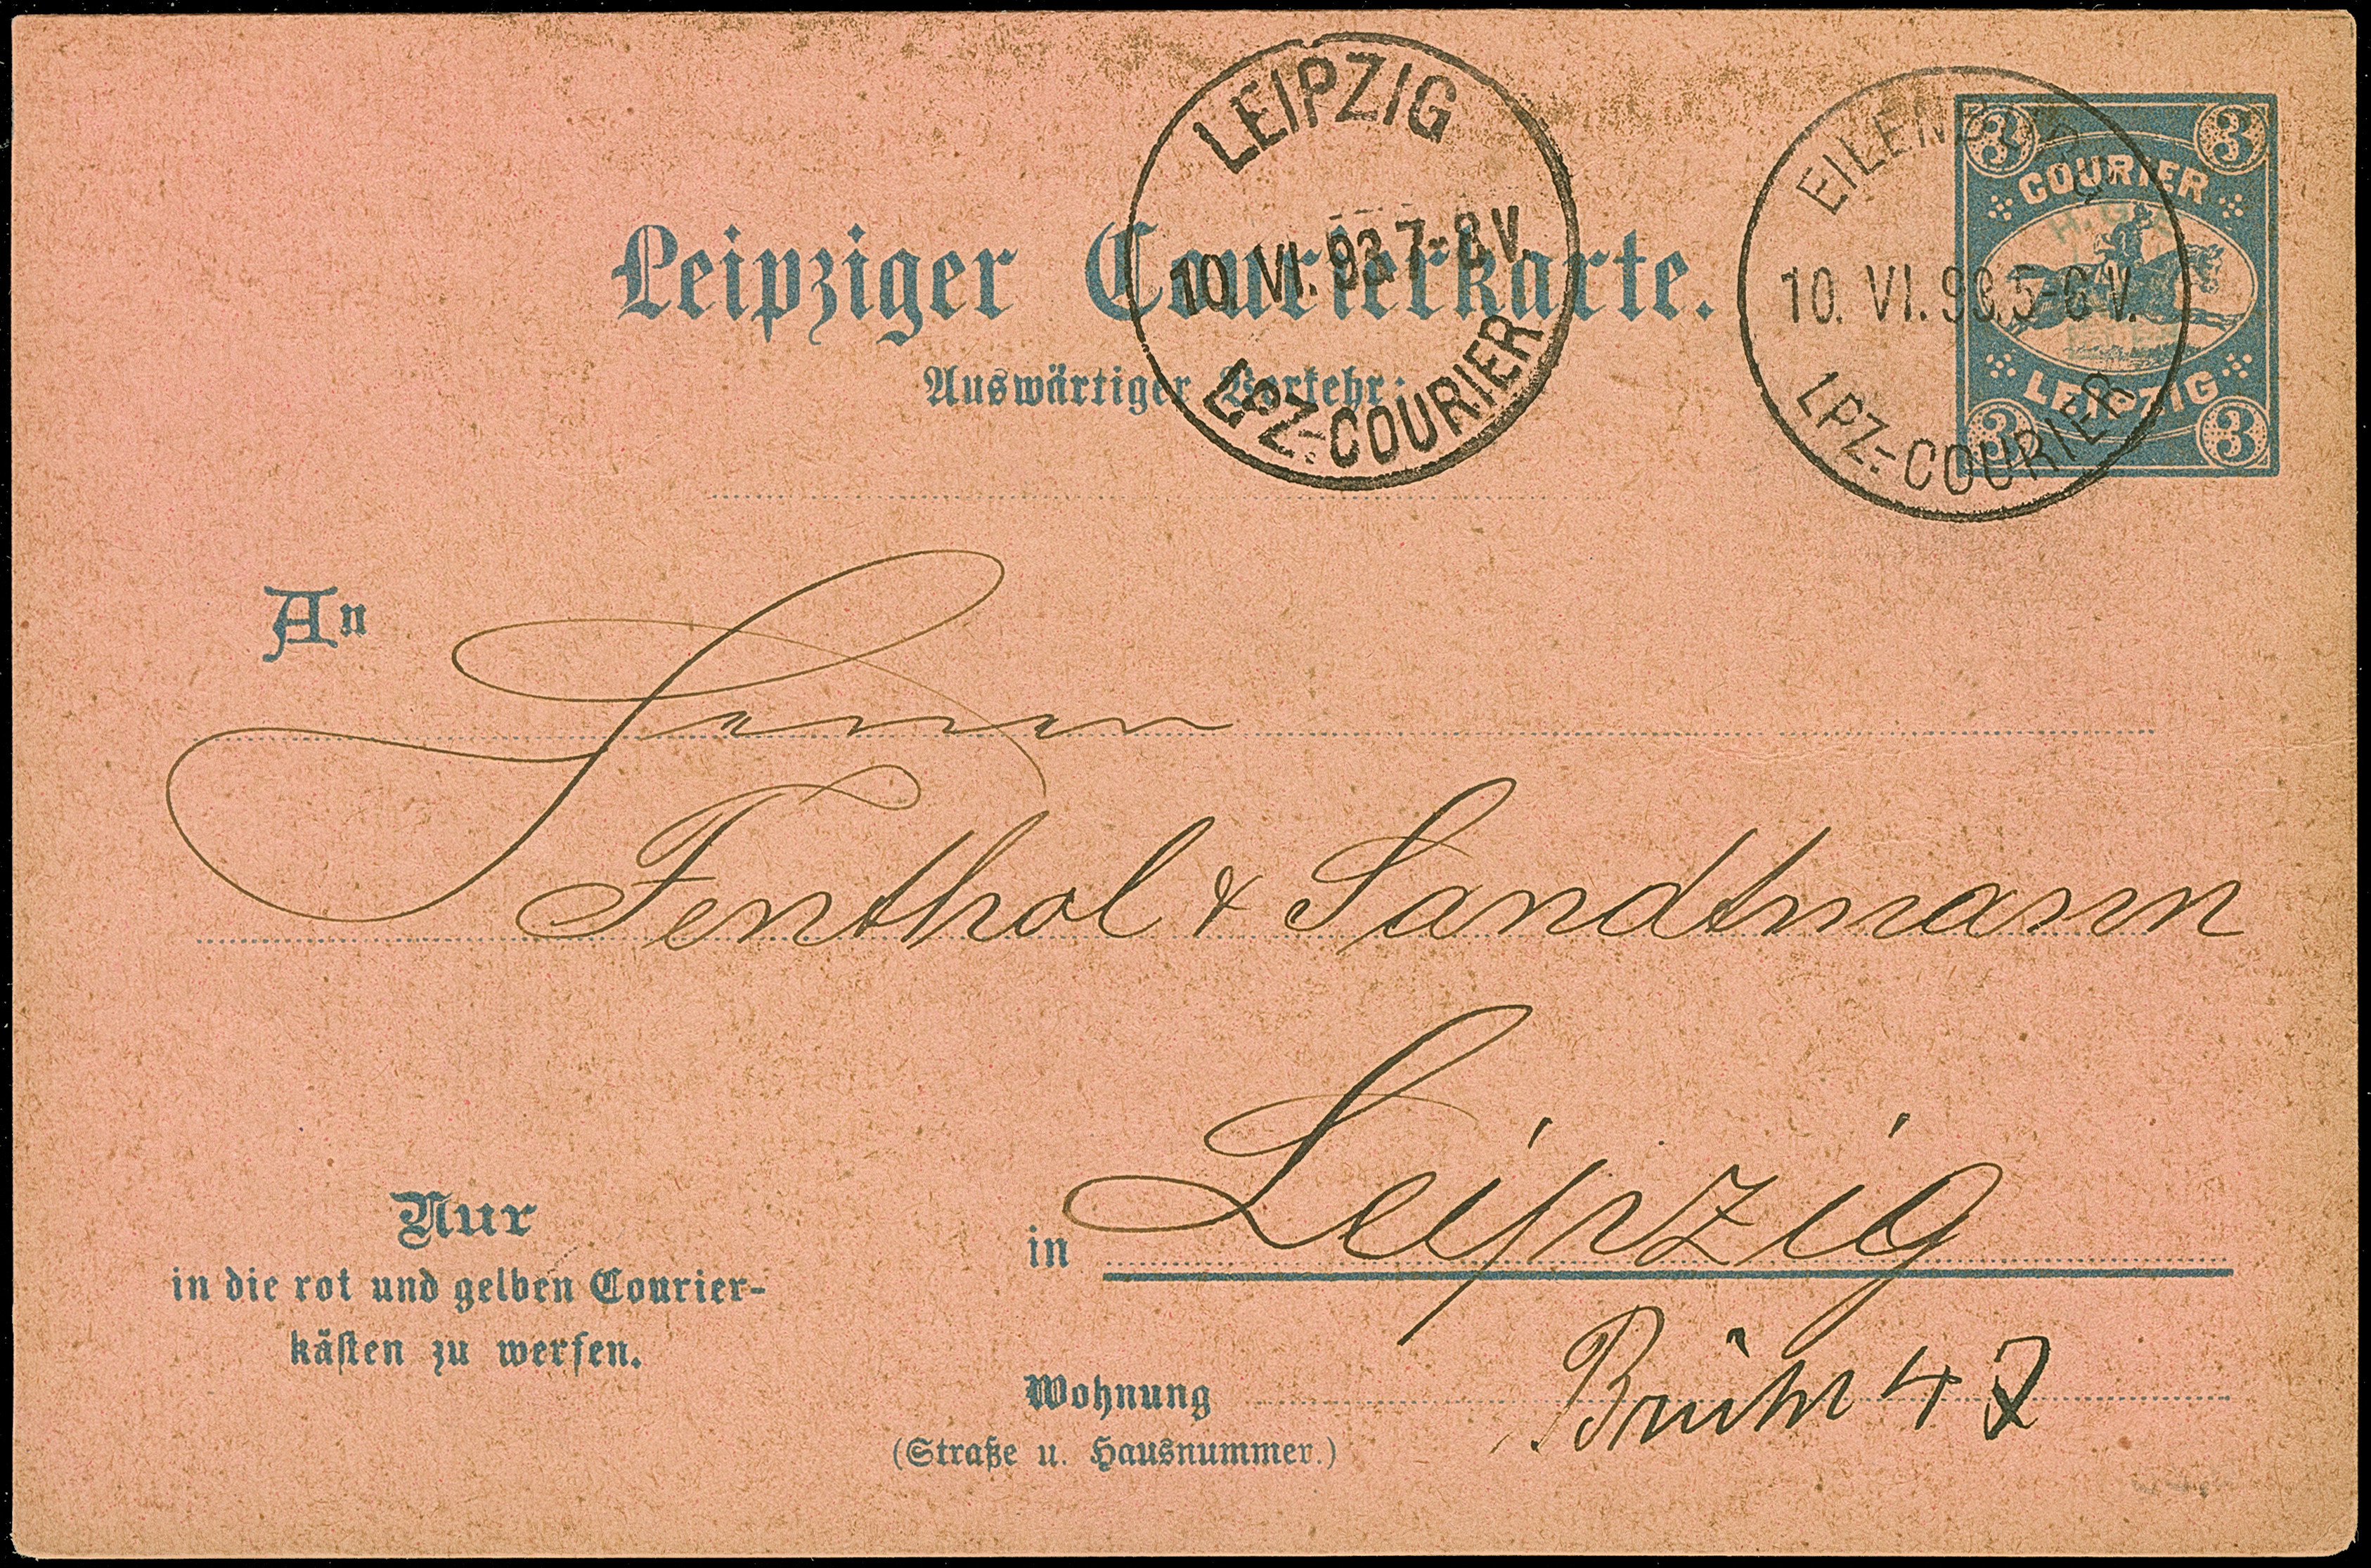 LEIPZIG
10. VI. 93. 7-8 V.
LPZ.-COURIER
EILENBURG
10. VI. 93. 5-6 V.
LPZ.-COURIER
3 3
COURIER
LEIPZIG
3 3
Leipziger Courierkarte.
Auswärtiger Verkehr:
An
Herren
Fenthol & Sandtmann
in Leipzig
Nur
in die rot und gelben Courier-
käſten zu werfen.
Wohnung Brühl 47
(Straße u. Hausnummer.)